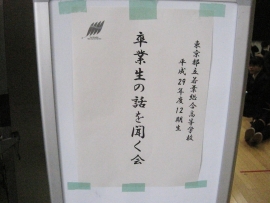 東京都立若葉総合高等学校
平成29年度12期生
卒業生の話を聞く会